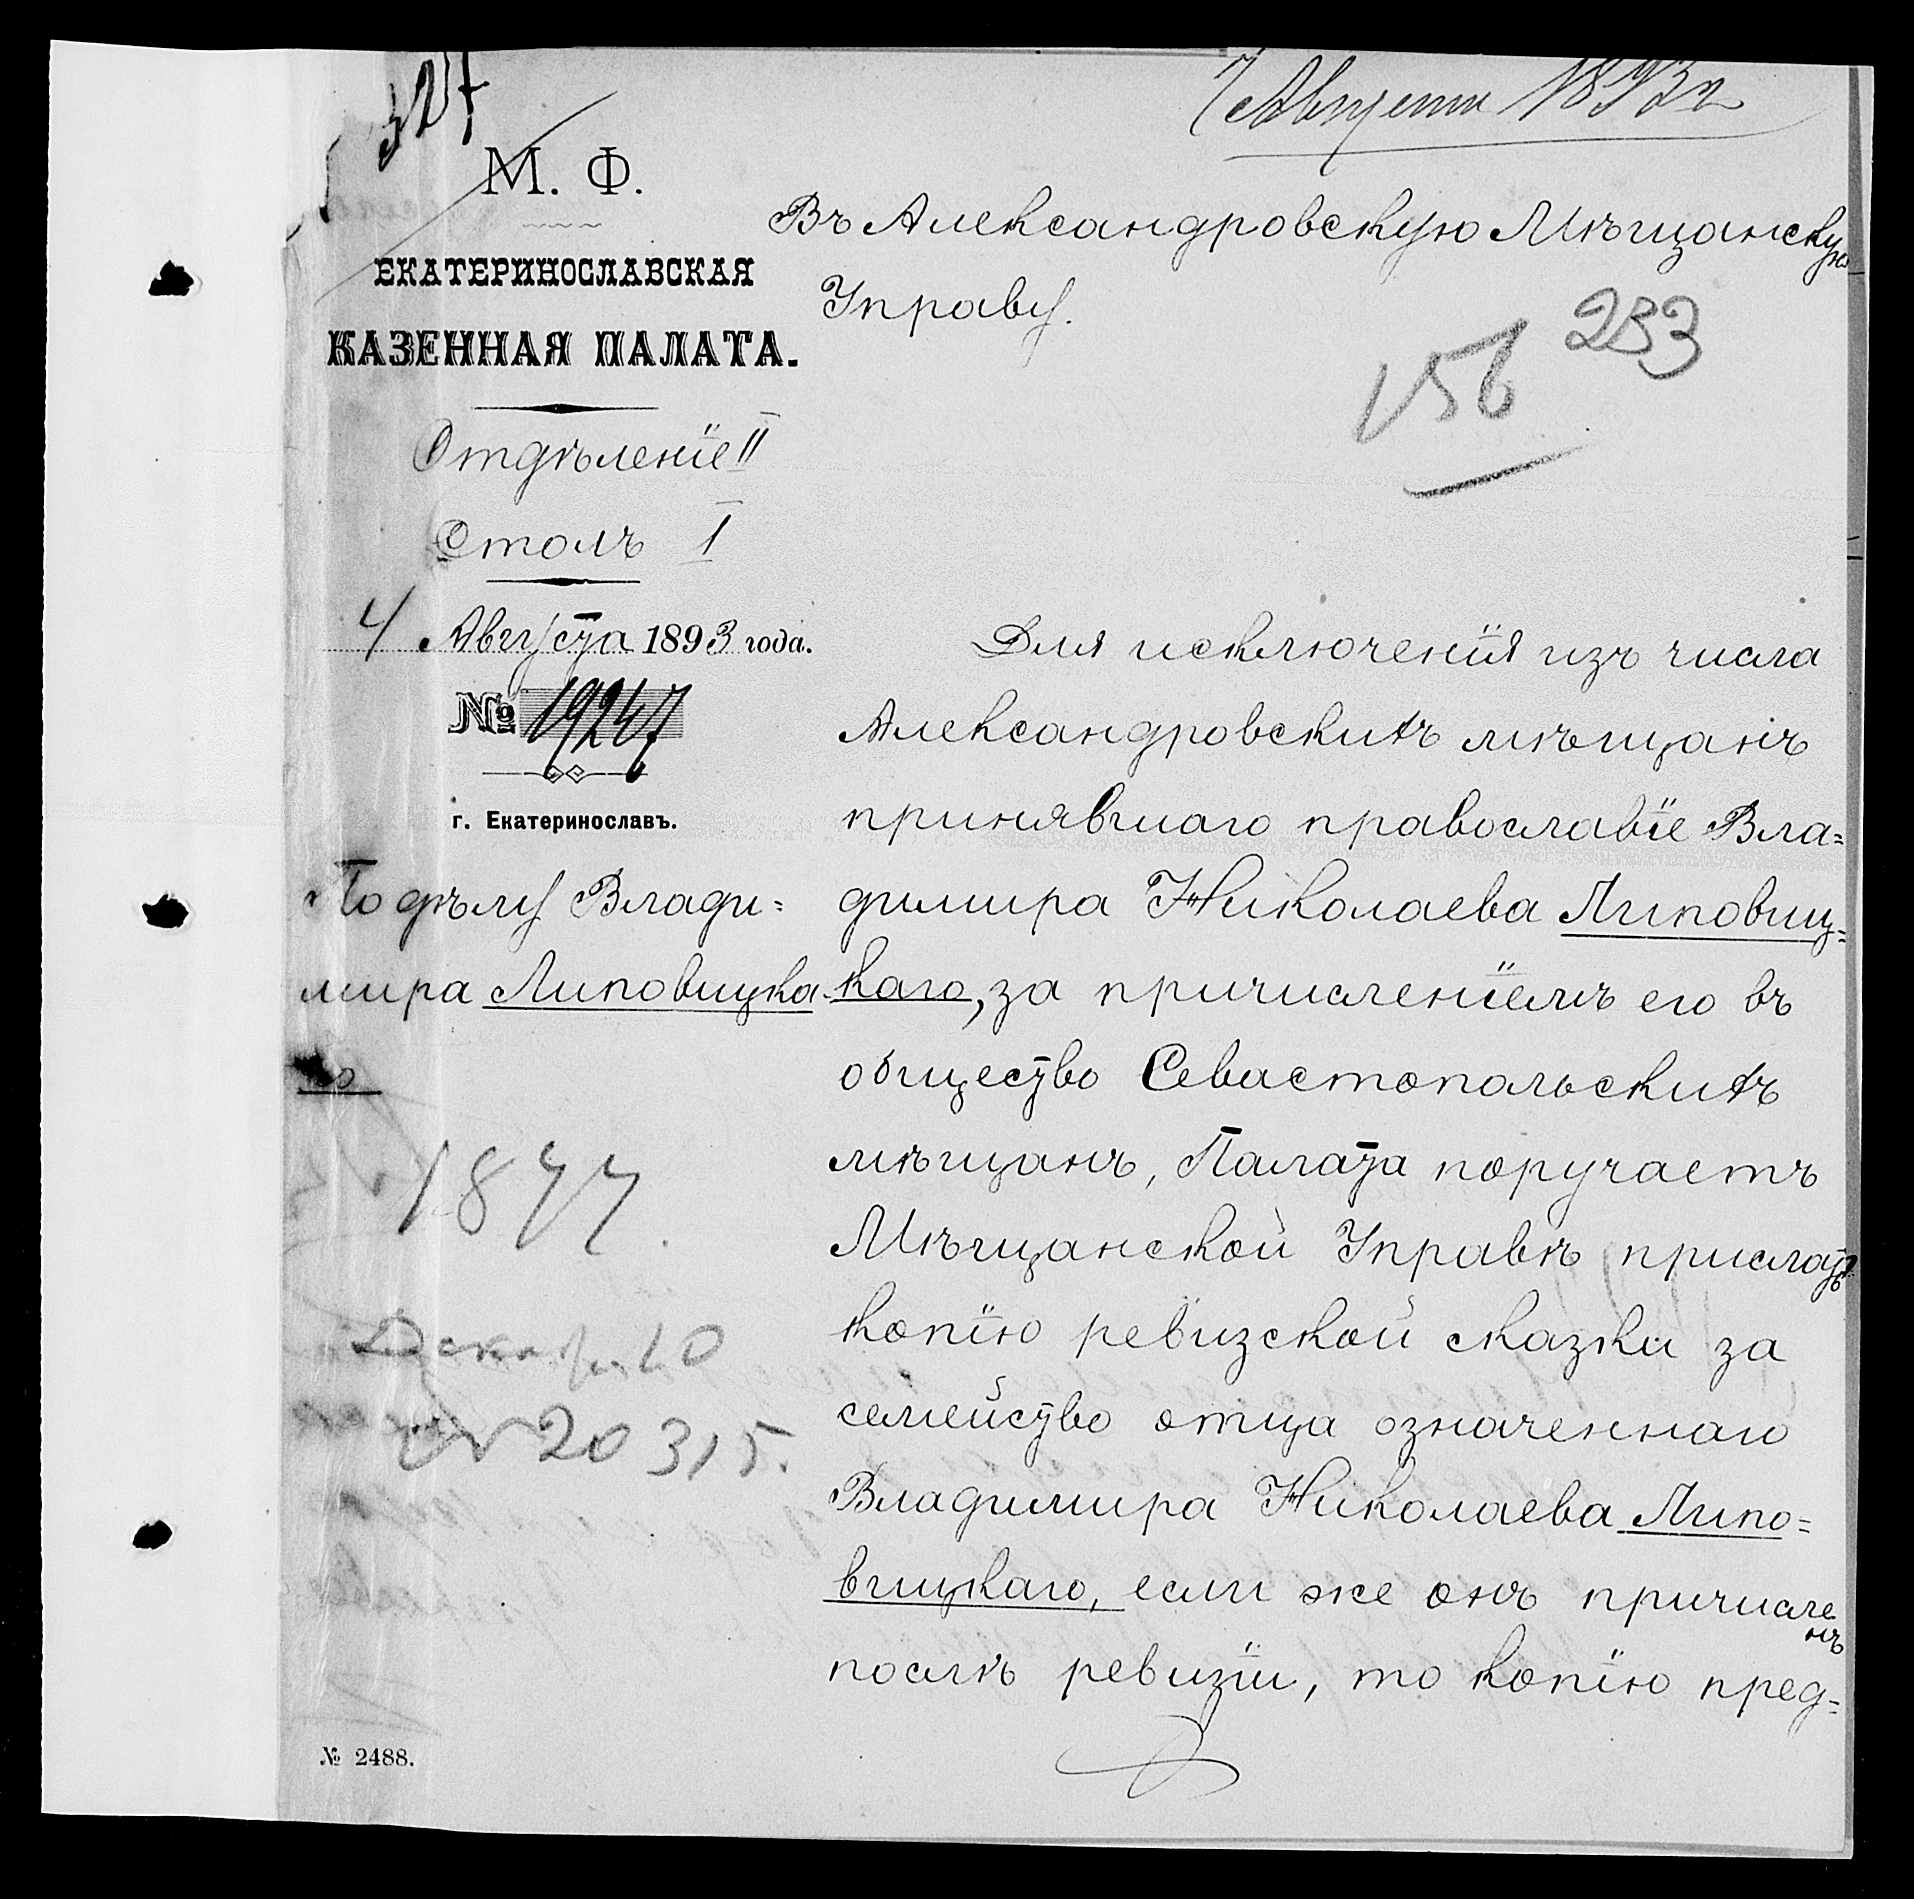 327
7 Августа 1893 г
М. Ф.
ЕКАТЕРИНОСЛАВСКАЯ
КАЗЕННАЯ ПАЛАТА.
Отдѣленіе II
Столъ I
4 Августа 1893 года.
№ 19247
г. Екатеринославъ.
По дѣлу Влади=
мира Липовицка-
го
1877.
Декабр. 10
№ 20315.
№ 2488.
Въ Александровскую Мѣщанскую
Управу.
233
156
Для исключенія изъ числа
Александровскихъ мѣщанъ
принявшаго православіе Вла=
димира Николаева Липовиц=
каго, за причисленіемъ его въ
общество Севастопольскихъ
мѣщанъ, Палата поручаетъ
Мѣщанской Управѣ прислать
копію ревизской сказки за
семейство отца означеннаго
Владимира Николаева Липо=
вицкаго, если же онъ причисленъ
послѣ ревизіи, то копію пред=